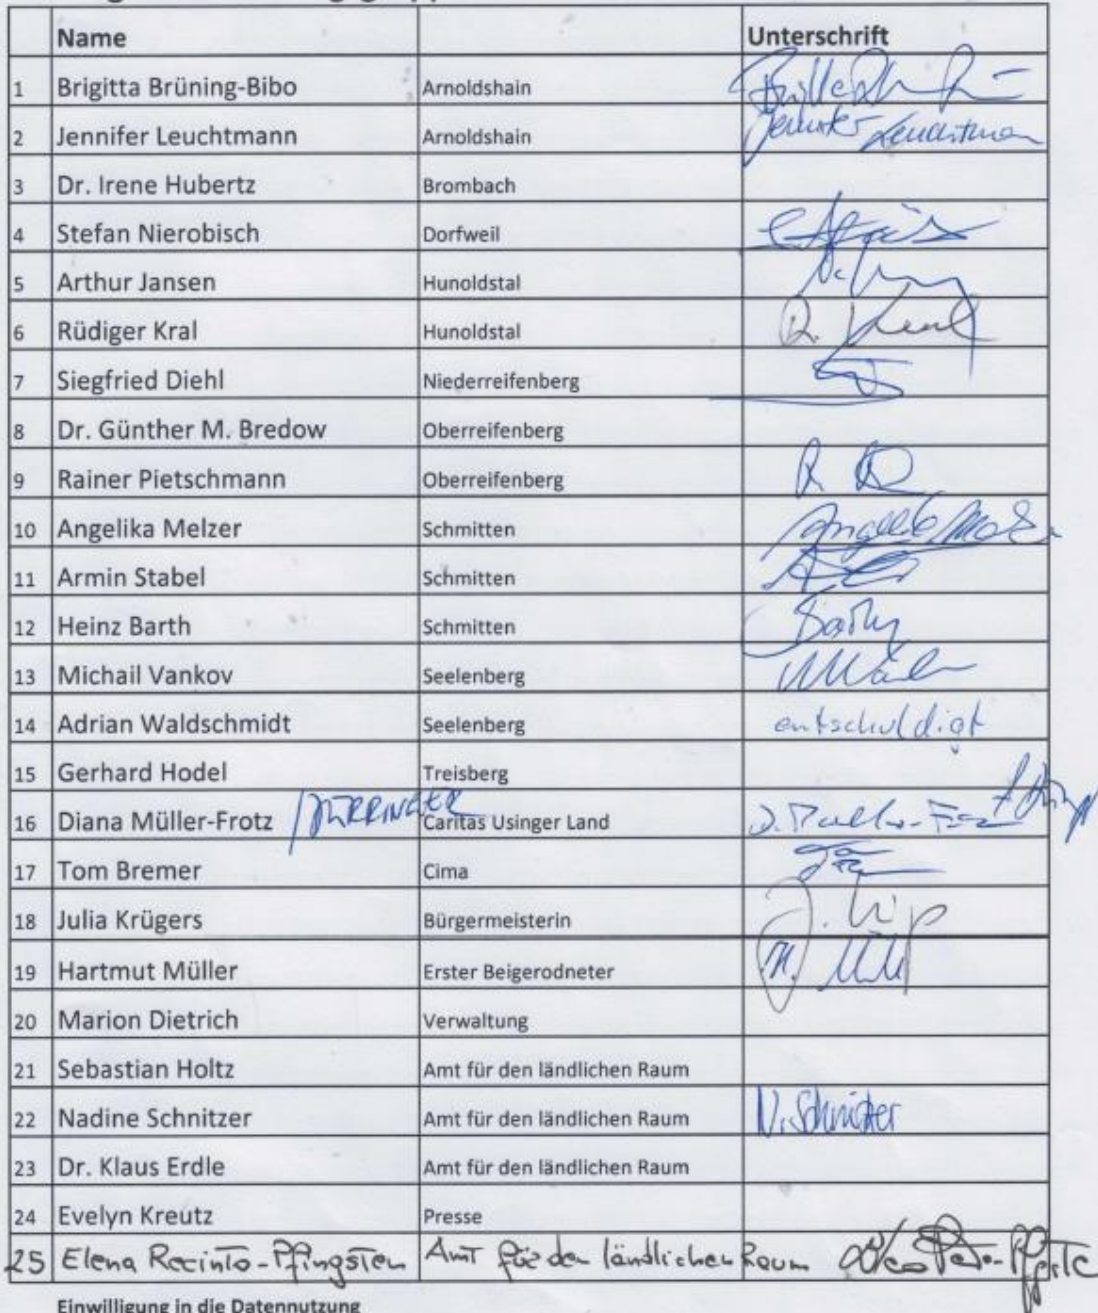 Name Unterschrift
1 Brigitta Brüning-Bibo Arnoldshain
2 Jennifer Leuchtmann Arnoldshain Jennifer Leuchtmann
3 Dr. Irene Hubertz Brombach
4 Stefan Nierobisch Dorfweil
5 Arthur Jansen Hunoldstal
6 Rüdiger Kral Hunoldstal R. Kral
7 Siegfried Diehl Niederreifenberg
8 Dr. Günther M. Bredow Oberreifenberg
9 Rainer Pietschmann Oberreifenberg
10 Angelika Melzer Schmitten
11 Armin Stabel Schmitten
12 Heinz Barth Schmitten Barth
13 Michail Vankov Seelenberg
14 Adrian Waldschmidt Seelenberg entschuldigt
15 Gerhard Hodel Treisberg
16 Diana Müller-Frotz Caritas Usinger Land
17 Tom Bremer Cima
18 Julia Krügers Bürgermeisterin
19 Hartmut Müller Erster Beigerodneter
20 Marion Dietrich Verwaltung
21 Sebastian Holtz Amt für den ländlichen Raum
22 Nadine Schnitzer Amt für den ländlichen Raum N. Schnitzer
23 Dr. Klaus Erdle Amt für den ländlichen Raum
24 Evelyn Kreutz Presse
25 Elena Recinto-Pfingsten Amt für den ländlichen Raum
Einwilligung in die Datennutzung